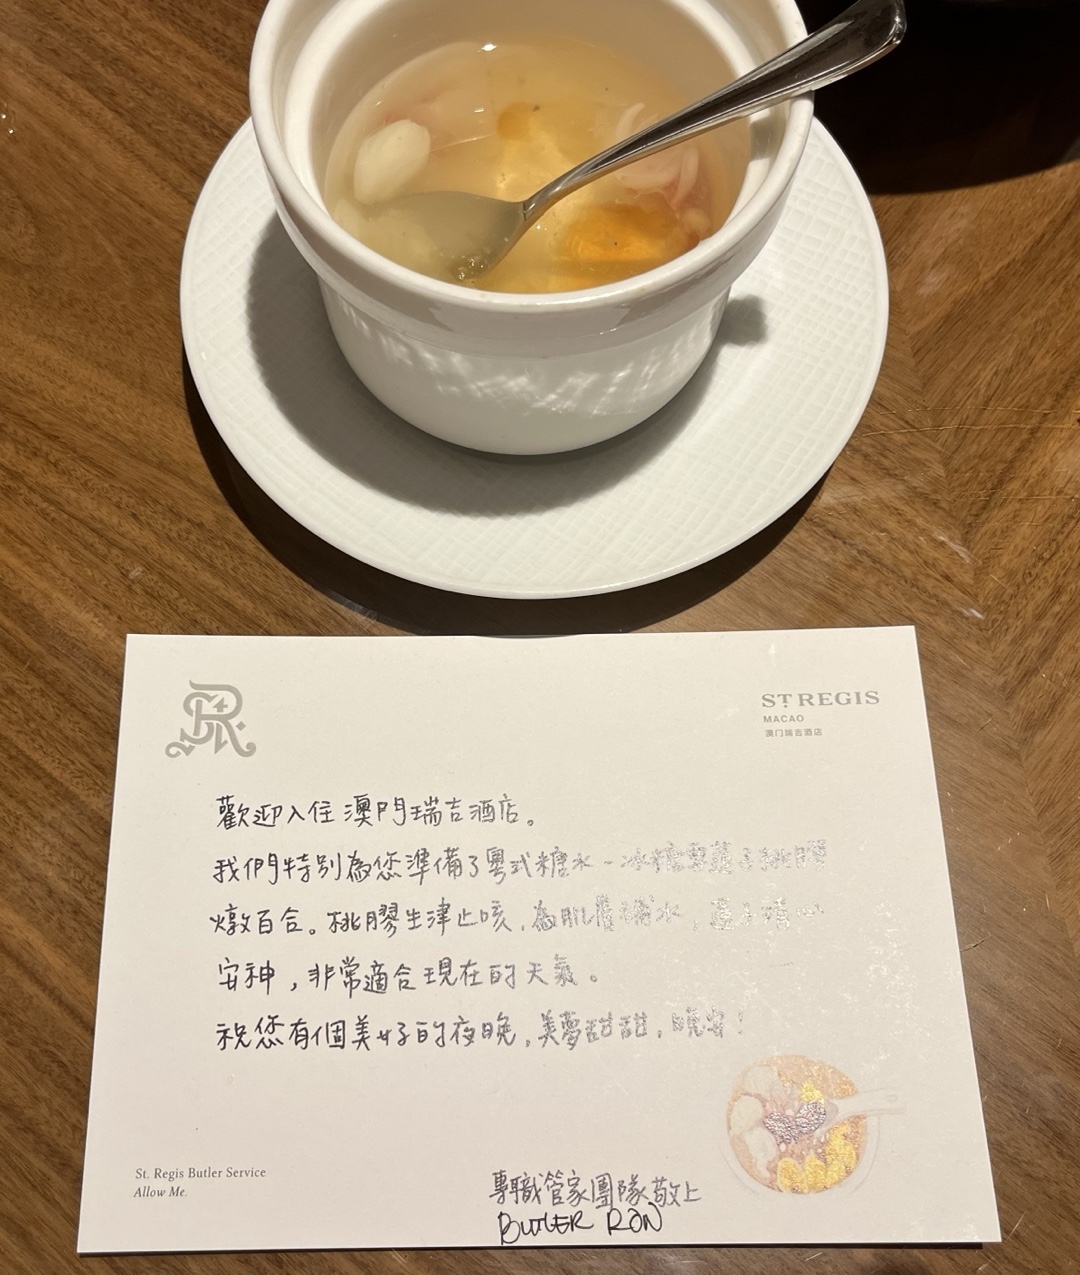 ST. REGIS
MACAO
澳门瑞吉酒店
歡迎入住澳門瑞吉酒店。
我們特別為您準備了粵式糖水-冰糖雪蓮子桃膠
燉百合。桃膠生津止咳,為肌膚補水,蓮子清心
安神,非常適合現在的天氣。
祝您有個美好的夜晚,美夢甜甜,晚安!
St. Regis Butler Service
Allow Me.
專職管家團隊敬上
BUTLER RON